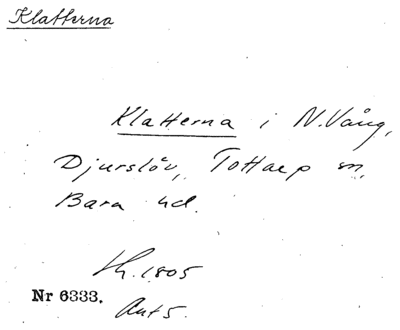 Klatterna
Klatterna i N. Vång,
Djurslöv, Tottarp sn,
Bara hd.
Lh. 1805
Nr 6333.
Ant 5.